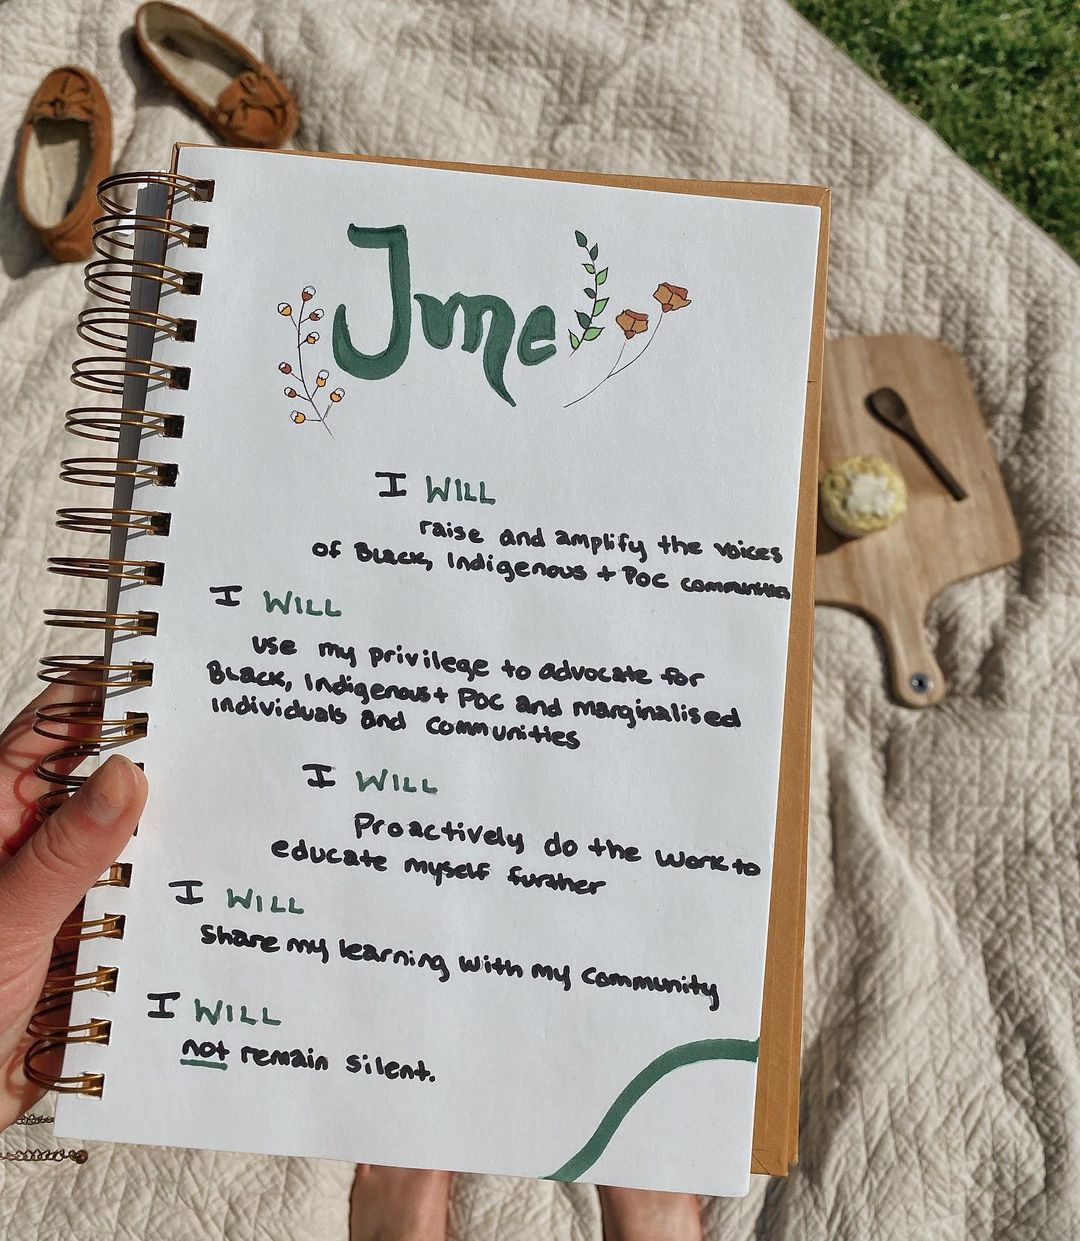 June
I WILL
raise and amplify the voices
of Black, Indigenous + POC communities
I WILL
use my privilege to advocate for
Black, Indigenous + POC and marginalised
individuals and communities
I WILL
Proactively do the work to
educate myself further
I WILL
share my learning with my community
I WILL
not remain silent.